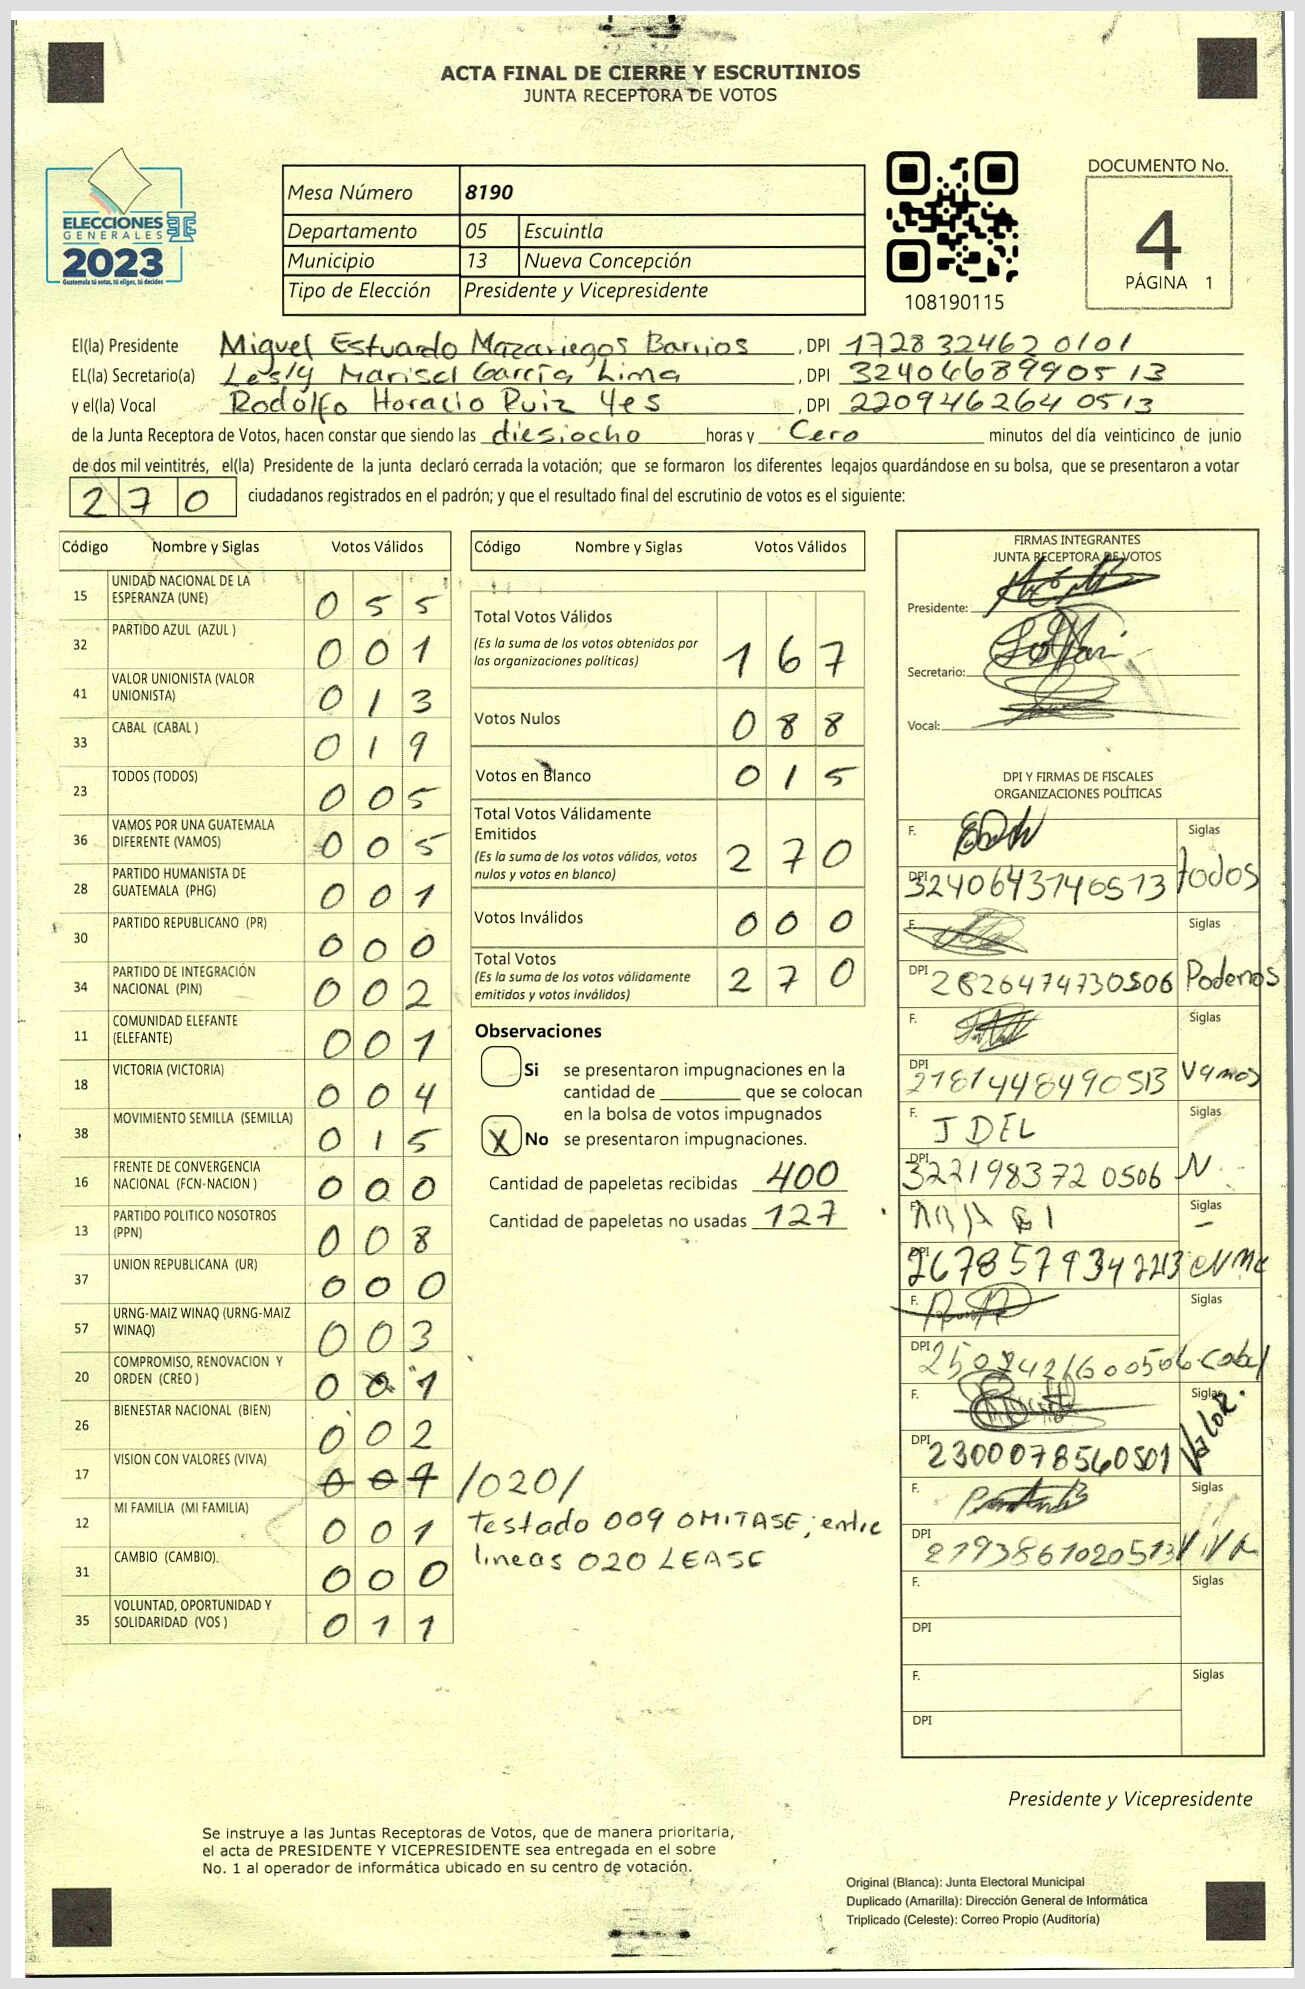 ACTA FINAL DE CIERRE Y ESCRUTINIOS
JUNTA RECEPTORA DE VOTOS
ELECCIONES
GENERALES
2023
Guatemala tú votas, tú eliges, tú decides
Mesa Número 8190
Departamento 05 Escuintla
Municipio 13 Nueva Concepción
Tipo de Elección Presidente y Vicepresidente
108190115
DOCUMENTO No.
4
PÁGINA 1
El(la) Presidente Miguel Estuardo Mazariegos Barrios , DPI 1728324620101
EL(la) Secretario(a) Lesly Marisel García Lima , DPI 3240668990513
y el(la) Vocal Rodolfo Horacio Ruiz Yes , DPI 2209462640513
de la Junta Receptora de Votos, hacen constar que siendo las diesiocho horas y Cero minutos del día veinticinco de junio
de dos mil veintitrés, el(la) Presidente de la junta declaró cerrada la votación; que se formaron los diferentes legajos guardándose en su bolsa, que se presentaron a votar
270 ciudadanos registrados en el padrón; y que el resultado final del escrutinio de votos es el siguiente:
Código Nombre y Siglas Votos Válidos
15 UNIDAD NACIONAL DE LA ESPERANZA (UNE) 055
32 PARTIDO AZUL (AZUL ) 001
41 VALOR UNIONISTA (VALOR UNIONISTA) 013
33 CABAL (CABAL ) 019
23 TODOS (TODOS) 005
36 VAMOS POR UNA GUATEMALA DIFERENTE (VAMOS) 005
28 PARTIDO HUMANISTA DE GUATEMALA (PHG) 001
30 PARTIDO REPUBLICANO (PR) 000
34 PARTIDO DE INTEGRACIÓN NACIONAL (PIN) 002
11 COMUNIDAD ELEFANTE (ELEFANTE) 001
18 VICTORIA (VICTORIA) 004
38 MOVIMIENTO SEMILLA (SEMILLA) 015
16 FRENTE DE CONVERGENCIA NACIONAL (FCN-NACION ) 000
13 PARTIDO POLITICO NOSOTROS (PPN) 008
37 UNION REPUBLICANA (UR) 000
57 URNG-MAIZ WINAQ (URNG-MAIZ WINAQ) 003
20 COMPROMISO, RENOVACION Y ORDEN (CREO ) 001
26 BIENESTAR NACIONAL (BIEN) 002
17 VISION CON VALORES (VIVA) 009 /020/
12 MI FAMILIA (MI FAMILIA) 001
31 CAMBIO (CAMBIO). 000
35 VOLUNTAD, OPORTUNIDAD Y SOLIDARIDAD (VOS ) 011
testado 009 OMITASE; entre
lineas 020 LEASE
Código Nombre y Siglas Votos Válidos
Total Votos Válidos
(Es la suma de los votos obtenidos por
las organizaciones políticas) 167
Votos Nulos 088
Votos en Blanco 015
Total Votos Válidamente
Emitidos
(Es la suma de los votos válidos, votos
nulos y votos en blanco) 270
Votos Inválidos 000
Total Votos
(Es la suma de los votos válidamente
emitidos y votos inválidos) 270
Observaciones
Si se presentaron impugnaciones en la
cantidad de ________ que se colocan
en la bolsa de votos impugnados
X No se presentaron impugnaciones.
Cantidad de papeletas recibidas 400
Cantidad de papeletas no usadas 127
FIRMAS INTEGRANTES
JUNTA RECEPTORA DE VOTOS
Presidente:
Secretario:
Vocal:
DPI Y FIRMAS DE FISCALES
ORGANIZACIONES POLÍTICAS
F. Siglas
DPI 3240643740513 todos
F. Siglas
DPI 2826474730506 Podemos
F. Siglas
DPI 2181448490513 Vamos
F. JDEL Siglas
DPI 3221983720506 N
F. Siglas
DPI 2678579342213
F. Siglas
DPI Cabal
F. Siglas
DPI 2300078560501 Valor.
F. Siglas
DPI 2793861020513 VIVA
F. Siglas
DPI
F. Siglas
DPI
Presidente y Vicepresidente
Se instruye a las Juntas Receptoras de Votos, que de manera prioritaria,
el acta de PRESIDENTE Y VICEPRESIDENTE sea entregada en el sobre
No. 1 al operador de informática ubicado en su centro de votación.
Original (Blanca): Junta Electoral Municipal
Duplicado (Amarilla): Dirección General de Informática
Triplicado (Celeste): Correo Propio (Auditoría)